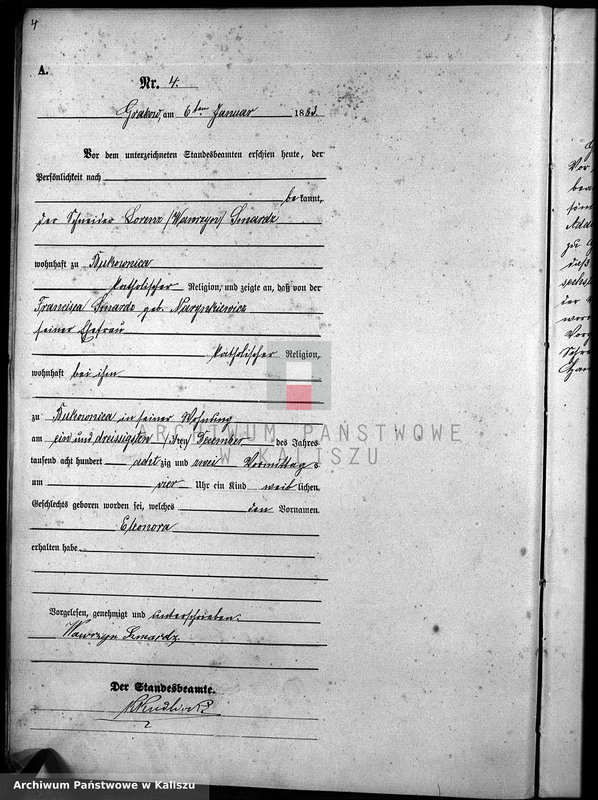 4
A.
Nr. 4.
Grabow, am 6ten Januar 1883.
Vor dem unterzeichneten Standesbeamten erschien heute, der
Persönlichkeit nach
bekannt,
der Schneider Lorenz (Wawrzyn) Smardz
wohnhaft zu Bukownica
katholischer Religion, und zeigte an, daß von der
Francisca Smardz geb.
seiner Ehefrau
katholischer Religion,
wohnhaft bei ihm
zu Bukownica in seiner Wohnung
am ein und dreissigsten Dezember des Jahres
tausend acht hundert achtzig und zwei Vormittags
um vier Uhr ein Kind weiblichen
Geschlechts geboren worden sei, welches den Vornamen
Eleonora
erhalten habe
Vorgelesen, genehmigt und unterschrieben.
Wawrzyn Smardz
Der Standesbeamte.
ARCHIWUM PAŃSTWOWE
W KALISZU
Archiwum Państwowe w Kaliszu